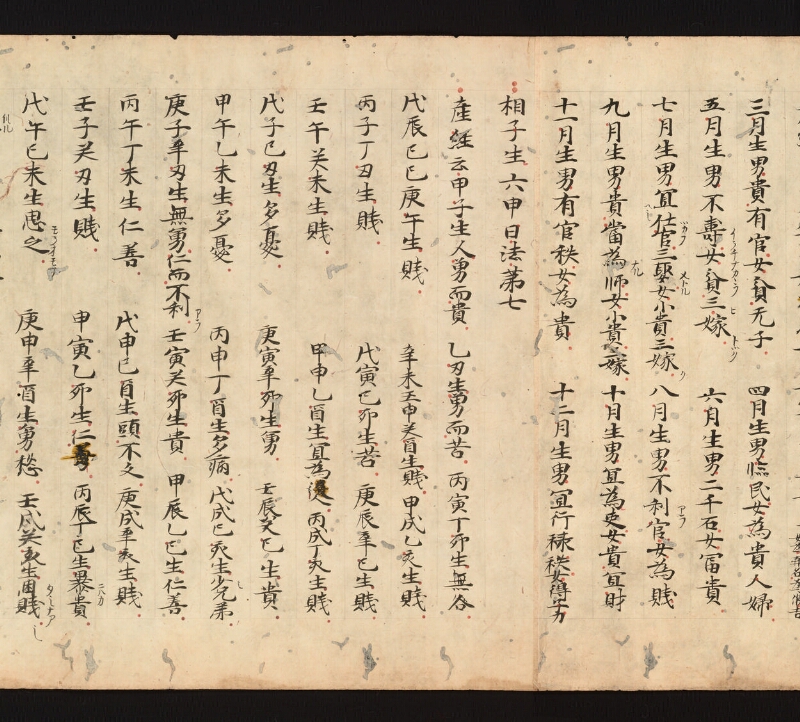 三月生男貴有官女貧无子 四月生男臨民女為貴人婦
五月生男不壽女貧三嫁 六月生男二千石女冨貴
七月生男冝仕官三娶女小貴三嫁 八月生男不利官女為賤
九月生男貴當為師女小貴二嫁 十月生男冝為吏女貴冝財
十一月生男有官秩女為貴 十二月生男冝行禄秩女得力
相子生六甲日法第七
産經云甲子生人勇而貴 乙丑生男而苦 丙寅丁卯生無咎
戊辰己巳庚午生賤 辛未壬申癸酉生賤 甲戌乙亥生賤
丙子丁丑生賤 戊寅己卯生苦 庚辰辛巳生賤
壬午癸未生賤 甲申乙酉生冝為 丙戌丁亥生賤
戊子己丑生多憂 庚寅辛卯生勇 壬辰癸巳生貴
甲午乙未生多憂 丙申丁酉生多病 戊戌己亥生少兄弟
庚子辛丑生無勇仁而不利 壬寅癸卯生貴 甲辰乙巳生仁善
丙午丁未生仁善 戊申己酉生頭不久 庚戌辛亥生賤
壬子癸丑生賤 甲寅乙卯生仁 丙辰丁巳生暴貴
戊午己未生思之 庚申辛酉生勇愁 壬戌癸亥生困賤